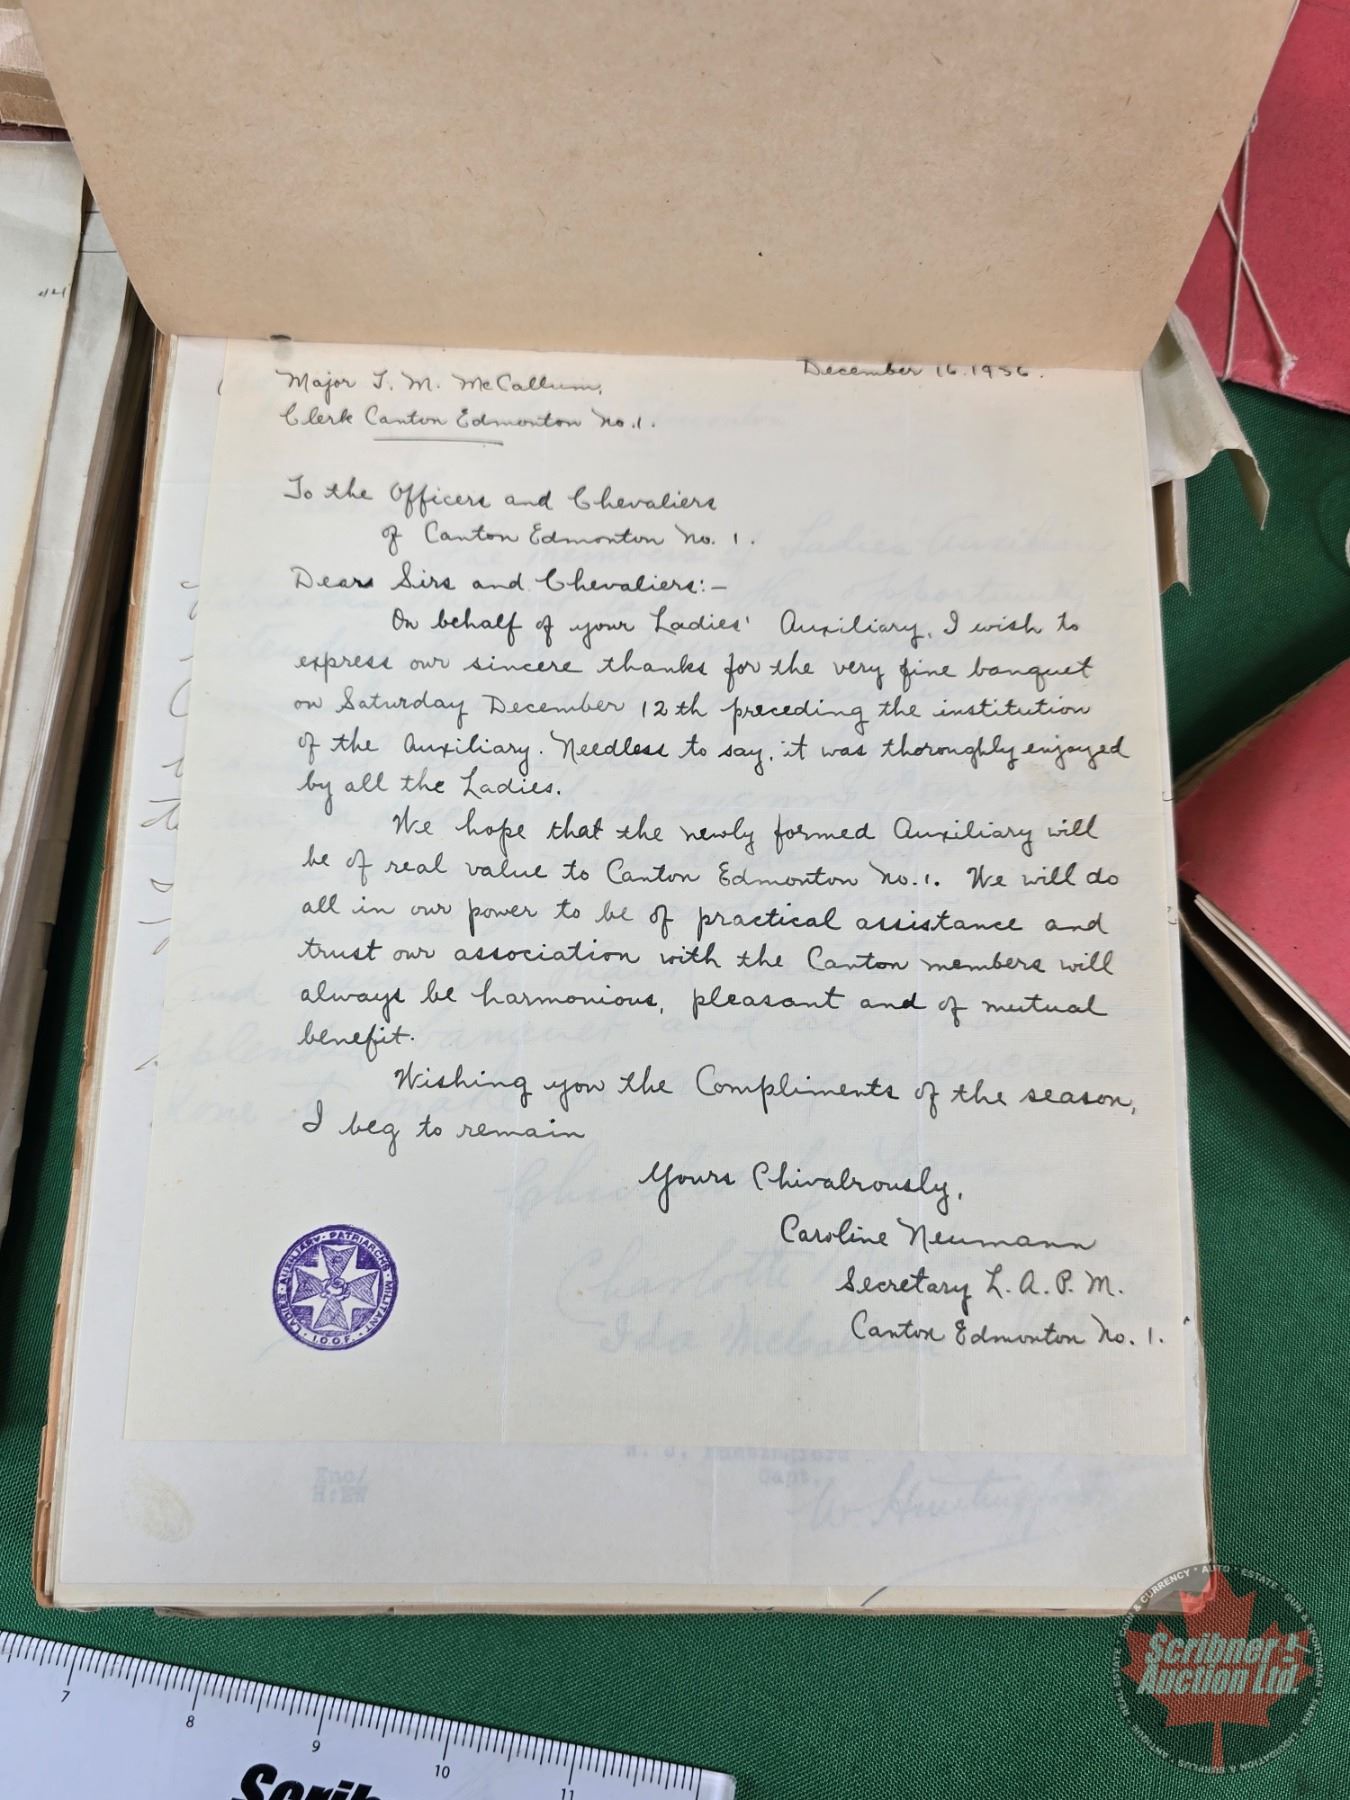 December 16.1936.
Major T. M. McCallum,
Clerk Canton Edmonton No.1.
To the Officers and Chevaliers
of Canton Edmonton No. 1.
Dear Sirs and Chevaliers:-
On behalf of your Ladies' Auxiliary, I wish to
express our sincere thanks for the very fine banquet
on Saturday December 12th preceding the institution
of the Auxiliary. Needless to say, it was thoroughly enjoyed
by all the Ladies.
We hope that the newly formed Auxiliary will
be of real value to Canton Edmonton No.1. We will do
all in our power to be of practical assistance and
trust our association with the Canton members will
always be harmonious, pleasant and of mutual
benefit.
Wishing you the Compliments of the season,
I beg to remain
Yours Chivalrously,
Caroline Neumann
Secretary L. A. P. M.
Canton Edmonton No. 1.
LADIES · AUXILIARY · PATRIARCHS · MILITANT · I.O.O.F.
Enc/
Capt.
Scribner
Auction Ltd.
7
8
9
10
11
Scrib